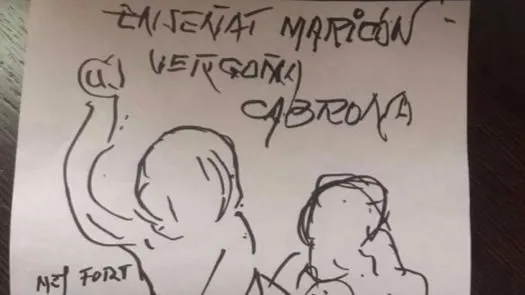 ENSEÑAT MARICÓN
VERGOÑA
CABRONA
MÉS FORT